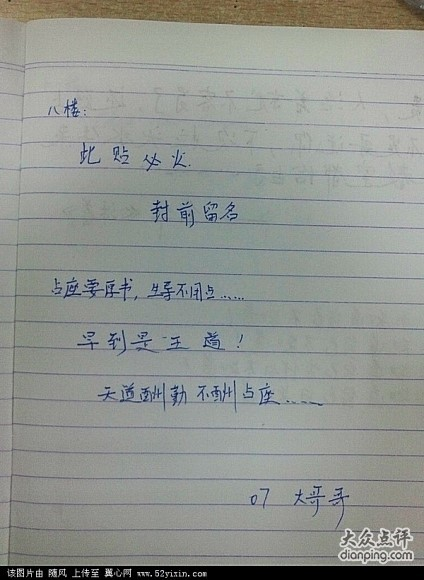 八楼:
此贴必火.
封前留名
占座要厚书,
早到是王道!
天道酬勤 不酬占座……
07 大哥哥
大众点评
dianping.com
该图片由 随风 上传至 翼心网 - www.52yixin.com